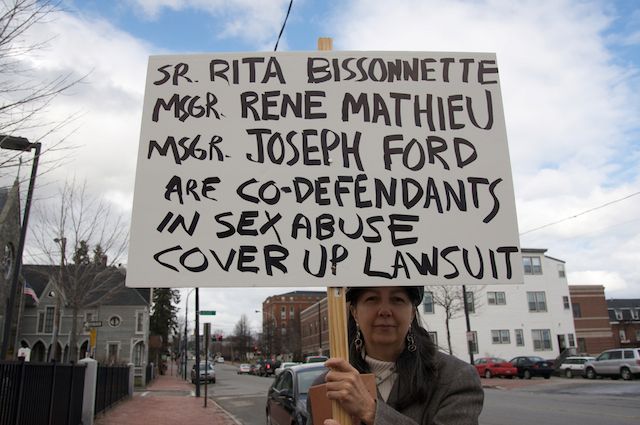 SR. RITA BISSONNETTE
MSGR. RENE MATHIEU
MSGR. JOSEPH FORD
ARE CO-DEFENDANTS
IN SEX ABUSE
COVER UP LAWSUIT